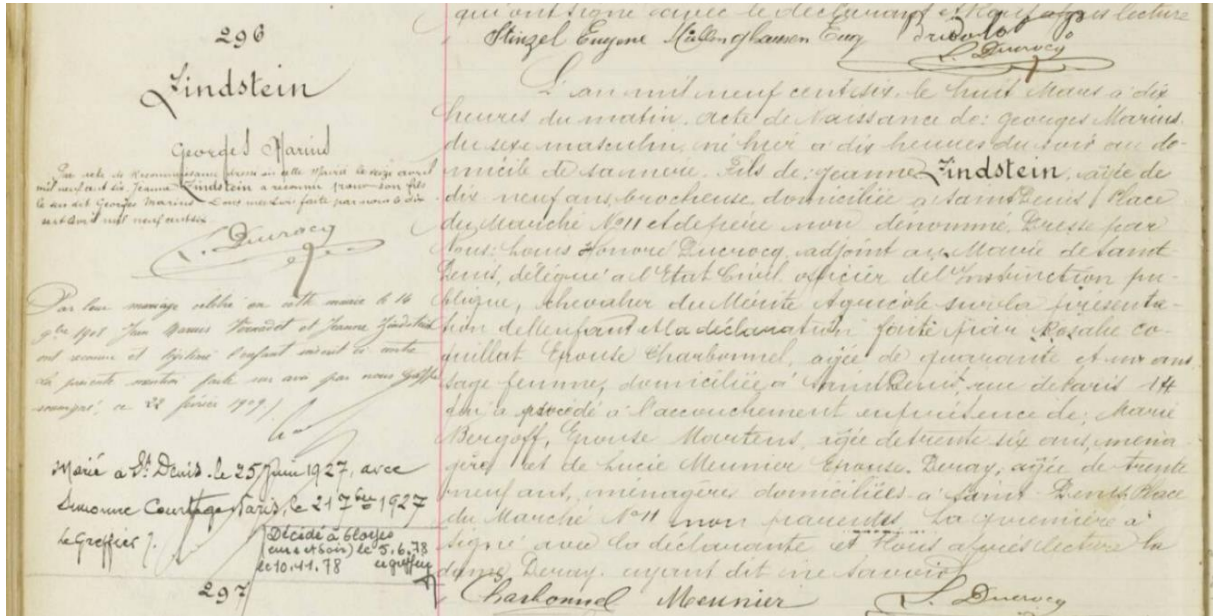 296
Lindstein
Georges Marius
Par acte de Reconnaissance dressé en cette Mairie le seize avril
mil neuf cent six, Jeanne Lindstein a reconnu pour son fils
le sus dit Georges Marius. Dont mention faite par nous le dix
sept avril mil neuf cent six
L. Ducrocq
Par leur mariage célébré en cette mairie le 14
9bre 1908 Jean Marius et Jeanne Lindstein
ont reconnu et légitimé l'enfant inscrit ci contre
La présente mention faite sur avis par nous Greffier
soussigné, ce 22 février 1909
Marié à St Denis le 25 Juin 1927, avec
Simonne Courtage Paris, le 21 7bre 1927
Le Greffier
Décédé à Blois
le 5.6.78
le 10.11.78
297
qui ont signé avec le déclarant et Nous après lecture
Stinzel Eugène Eug
L. Ducrocq
L'an mil neuf cent six, le huit Mars à dix
heures du matin. Acte de Naissance de: Georges Marius,
du sexe masculin, né hier à dix heures du soir au do-
micile de sa mère. Fils de: Jeanne Lindstein, âgée de
dix neuf ans, brocheuse, domiciliée à Saint Denis, Place
du Marché No 11 et de père non dénommé. Dressé par
Nous: Louis Honoré Ducrocq, adjoint au Maire de Saint
Denis, délégué à l'Etat Civil, officier de l'Instruction pu-
blique, Chevalier du Mérite Agricole sur la présenta-
tion de l'enfant et la déclaration faite par Rosalie Co-
quillat Epouse Charbonnel, âgée de quarante et un ans
sage femme, domiciliée à Saint Denis, rue de Paris 14
qui a procédé à l'accouchement en présence de: Marie
Bergoff, Epouse Martens, âgée de trente six ans, ména-
gère et de Lucie Meunier Epouse Deray, âgée de trente
neuf ans, ménagère domiciliées à Saint-Denis, Place
du Marché No 11 non parentes. La première a
signé avec la déclarante et Nous après lecture la
dame Deray ayant dit ne savoir
Charbonnel Meunier L. Ducrocq